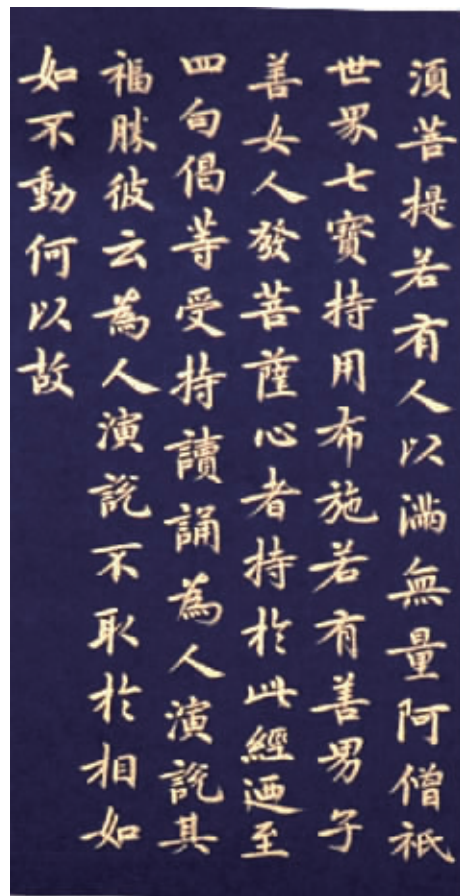 須菩提若有人以滿無量阿僧祇
世界七寶持用布施若有善男子
善女人發菩薩心者持於此經迺至
四句偈等受持讀誦為人演說其
福勝彼云為人演說不取於相如
如不動何以故